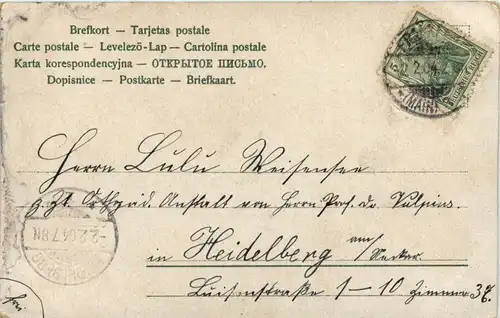 Brefkort — Tarjetas postale
Carte postale — Levelező-Lap — Cartolina postale
Karta korespondencyjna — ОТКРЫТОЕ ПИСЬМО.
Dopisnice — Postkarte — Briefkaart.
Herrn Lulu Weisensee
z. Zt. Orthopäd. Anstalt von Herrn Prof. Dr. Vulpius.
in Heidelberg am/Neckar.
Luisenstraße 1–10 Zimmer
2.2.04.7
(MAIN)